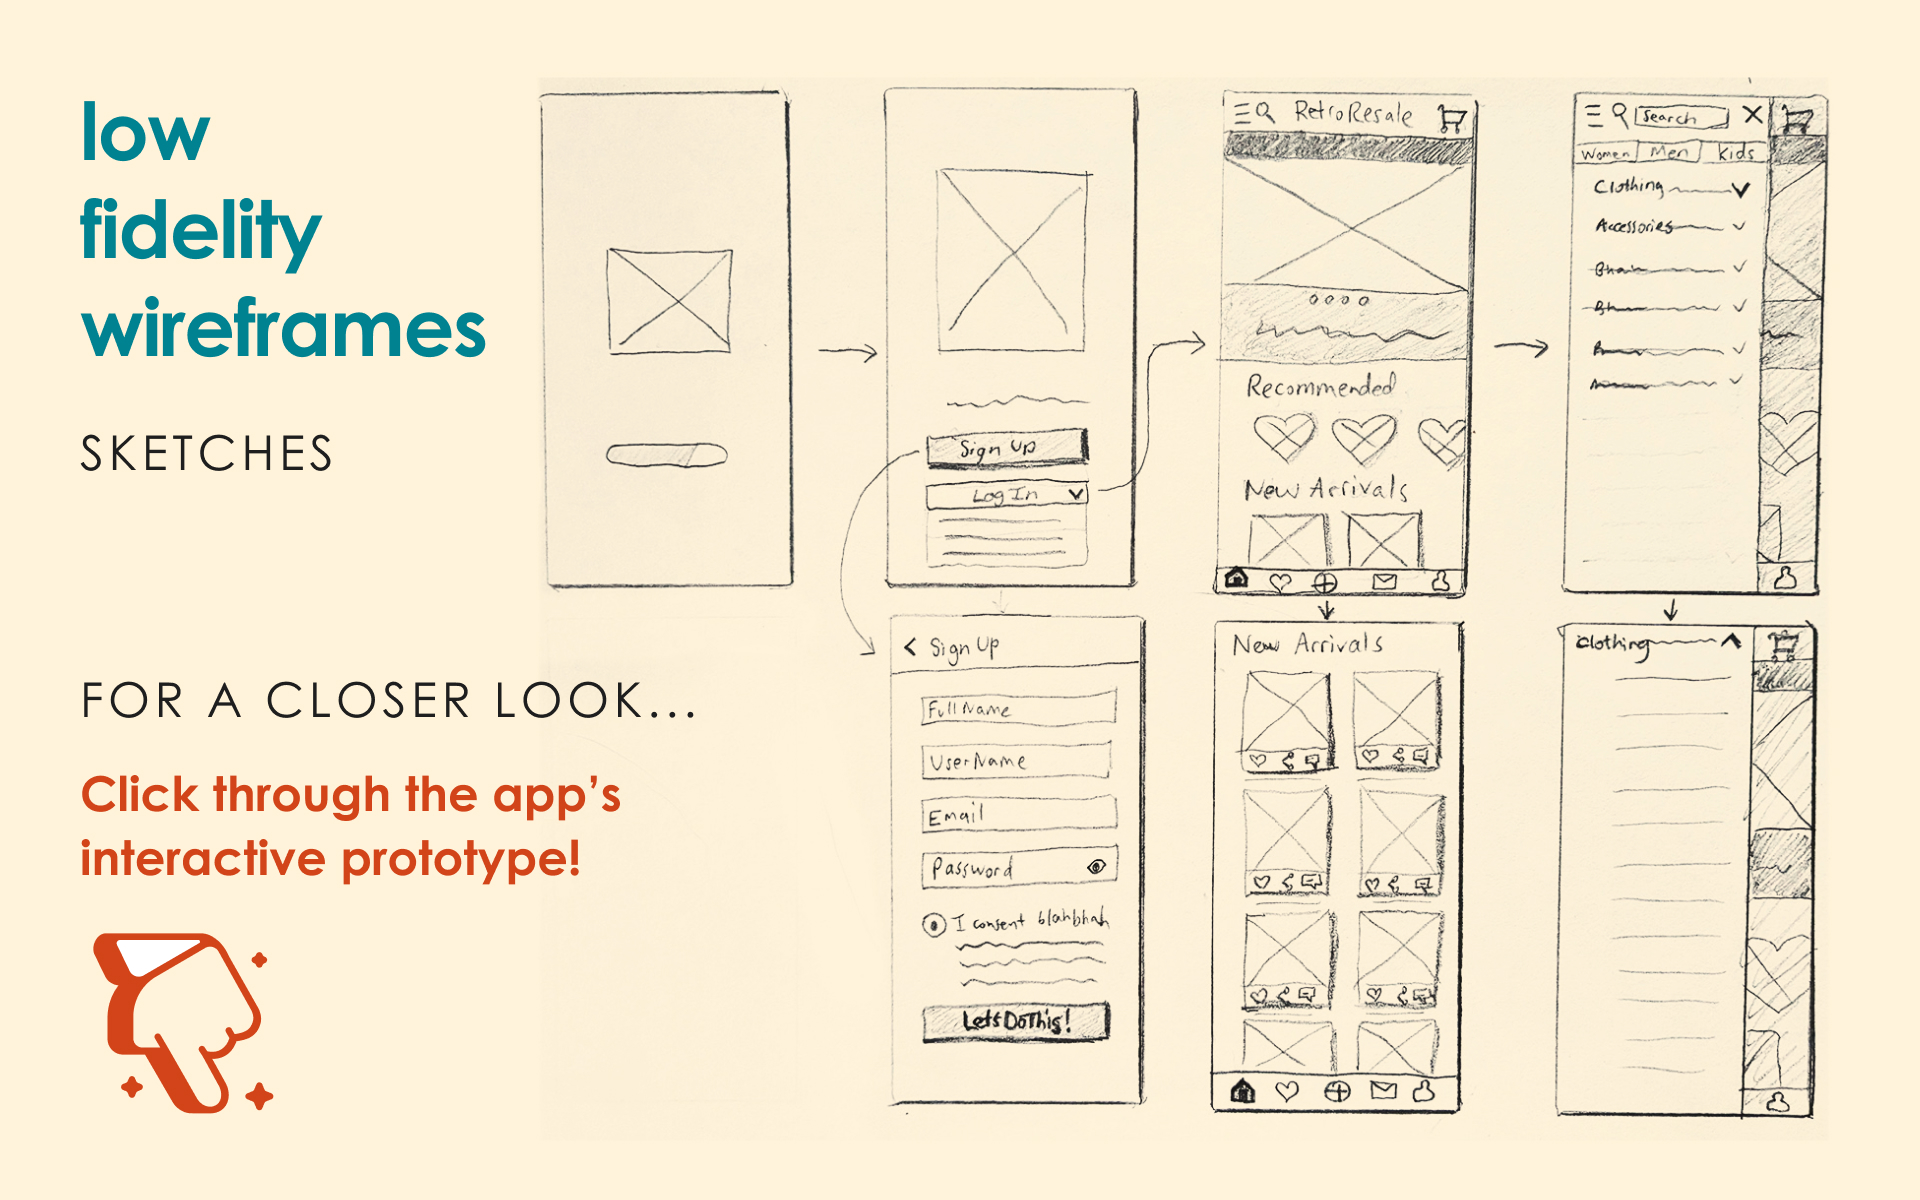 low
fidelity
wireframes
SKETCHES
FOR A CLOSER LOOK...
Click through the app’s
interactive prototype!
Sign Up
Log In
RetroResale
Recommended
New Arrivals
Search
Women Men Kids
Clothing
Accessories
Sign Up
Full Name
UserName
Email
Password
I consent blahbhah
Lets Do This!
New Arrivals
Clothing